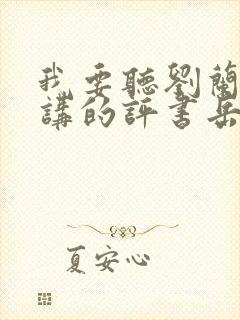 我要聽劉蘭
講的評書岳
夏安心